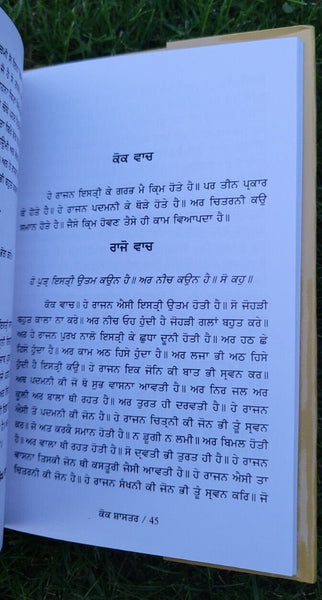 ਕੋਕ ਵਾਚ
ਹੇ ਰਾਜਨ ਇਸਤ੍ਰੀ ਕੇ ਗਰਭ ਮੈ ਕ੍ਰਿਮ ਹੋਤੇ ਹੈ॥ ਪਰ ਤੀਨ ਪ੍ਰਕਾਰ
ਛੇ ਹੋਤੇ ਹੈ॥ ਹੇ ਰਾਜਨ ਪਦਮਨੀ ਕੇ ਥੋੜੇ ਹੋਤੇ ਹੈ॥ ਅਰ ਚਿਤਰਨੀ ਕਉ
ਸਮਾਨ ਹੋਤੇ ਹੈ॥ ਜੈਸੇ ਕ੍ਰਿਮ ਹੋਵਣ ਤੈਸੇ ਹੀ ਕਾਮ ਵਿਆਪਦਾ ਹੈ॥
ਰਾਜੋ ਵਾਚ
ਹੇ ਪੁਤ੍ਰ ਇਸਤ੍ਰੀ ਉਤਮ ਕਉਨ ਹੈ॥ ਅਰ ਨੀਚ ਕਉਨ ਹੈ॥ ਸੋ ਕਹੁ॥
ਕੋਕ ਵਾਚ॥ ਹੇ ਰਾਜਨ ਐਸੀ ਇਸਤ੍ਰੀ ਉਤਮ ਹੋਤੀ ਹੈ॥ ਸੋ ਜੇਹੜੀ
ਬਹੁਤ ਕਾਲਾ ਨਾ ਕਰੇ॥ ਅਰ ਨੀਚ ਓਹ ਹੁੰਦੀ ਹੈ ਜੇਹੜੀ ਗਲਾਂ ਬਹੁਤ ਕਰੇ॥
ਅਰ ਹੇ ਰਾਜਨ ਪੁਰਖ ਨਾਲੋ ਇਸਤ੍ਰੀ ਕੇ ਛੁਧਾ ਦੂਨੀ ਹੋਤੀ ਹੈ॥ ਅਰ ਹਠ ਛੇ
ਹਿਸੇ ਹੁੰਦਾ ਹੈ॥ ਅਰ ਕਾਮ ਅਠ ਹਿਸੇ ਹੋਤਾ ਹੈ॥ ਅਰ ਲਜਾ ਭੀ ਅਠ ਹਿਸੇ
ਹੁੰਦੀ ਹੈ ਇਸਤ੍ਰੀ ਕਉ॥ ਹੇ ਰਾਜਨ ਇਕ ਜੋਨਿ ਕੀ ਬਾਤ ਭੀ ਸ੍ਰਵਨ ਕਰ॥
ਅਬ ਪਦਮਨੀ ਕੀ ਜੋ ਥੋ ਸੁਭ ਵਾਸਨਾ ਆਵਤੀ ਹੈ॥ ਅਰ ਨਿਰ ਜਲ ਅਰ
ਕੂਲੀ ਅਰ ਬਾਲਾ ਥੀ ਰਹਤ ਹੋਤੀ ਹੈ॥ ਅਰ ਤੁਰਤ ਹੀ ਦਰਵਤੀ ਹੈ॥ ਹੇ ਰਾਜਨ
ਐਸੀ ਤੋ ਪਦਮਨੀ ਕੀ ਜੋਨ ਹੈ॥ ਹੇ ਰਾਜਨ ਚਿਤ੍ਰਨੀ ਕੀ ਜੋਨ ਭੀ ਤੂੰ ਸ੍ਰਵਨ
ਕਰ॥ ਜੋ ਅਤ ਕਰਕੇ ਸਮਾਨ ਹੋਤੀ ਹੈ॥ ਨ ਡੂਗੀ ਨ ਲਮੀ॥ ਅਰ ਬਿਮਲ ਹੋਤੀ
ਹੈ॥ ਅਰ ਵਾਲਾ ਥੀ ਰਹਤ ਹੋਤੀ ਹੈ॥ ਸੋ ਦ੍ਵਤੀ ਭੀ ਤੁਰਤ ਹੀ ਹੈ॥ ਹੇ ਰਾਜਨ
ਵਾਸਨਾ ਤਿਸਕੀ ਜੋਨ ਥੀ ਕਸਤੂਰੀ ਜੈਸੀ ਆਵਤੀ ਹੈ॥ ਹੇ ਰਾਜਨ ਐਸੀ ਤਾ
ਚਿਤਰਨੀ ਕੀ ਜੋਨ ਹੈ॥ ਹੇ ਰਾਜਨ ਸੰਖਨੀ ਕੀ ਜੋਨ ਭੀ ਤੂੰ ਸ੍ਰਵਨ ਕਰਿ॥ ਜੋ
ਕੋਕ ਸ਼ਾਸਤਰ / 45